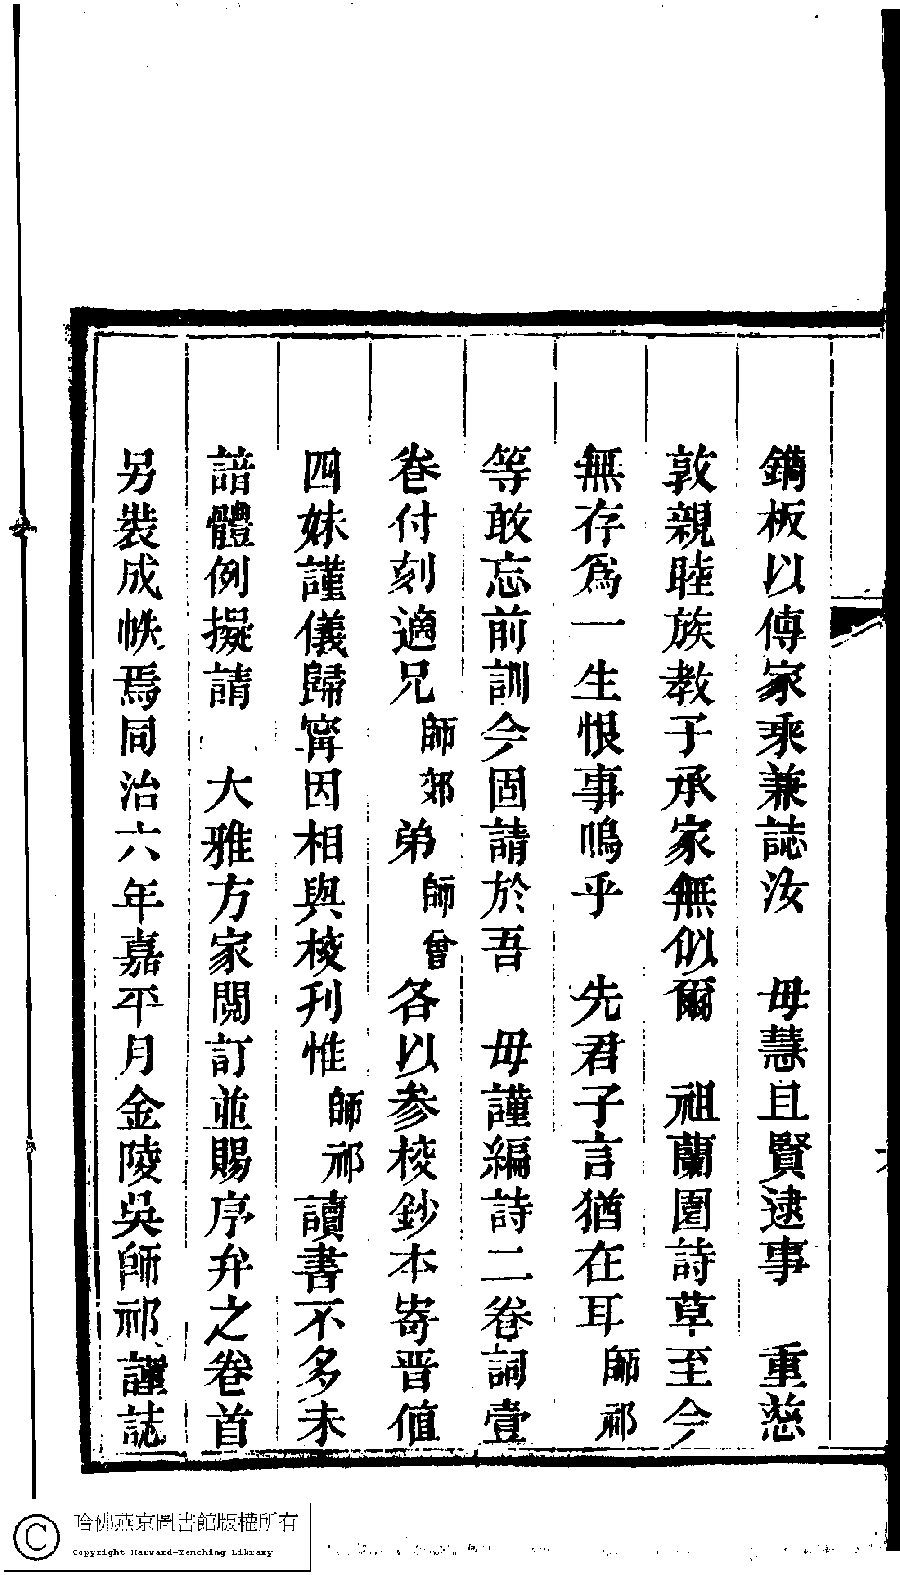 鐫板以傳家乘兼誌汝　母慧且賢逮事　重慈
敦親睦族教子承家無似爾　祖蘭圃詩草至今
無存爲一生恨事嗚乎　先君子言猶在耳師祁
等敢忘前訓今固請於吾　母謹編詩二卷詞壹
卷付刻適兄師郊弟師曾各以參校鈔本寄晋值
四妹謹儀歸甯因相與校刊惟師祁讀書不多未
諳體例擬請　大雅方家閱訂並賜序弁之卷首
另裝成帙焉同治六年嘉平月金陵吳師祁謹誌
哈佛燕京圖書館版權所有
Copyright Harvard-Yenching Library